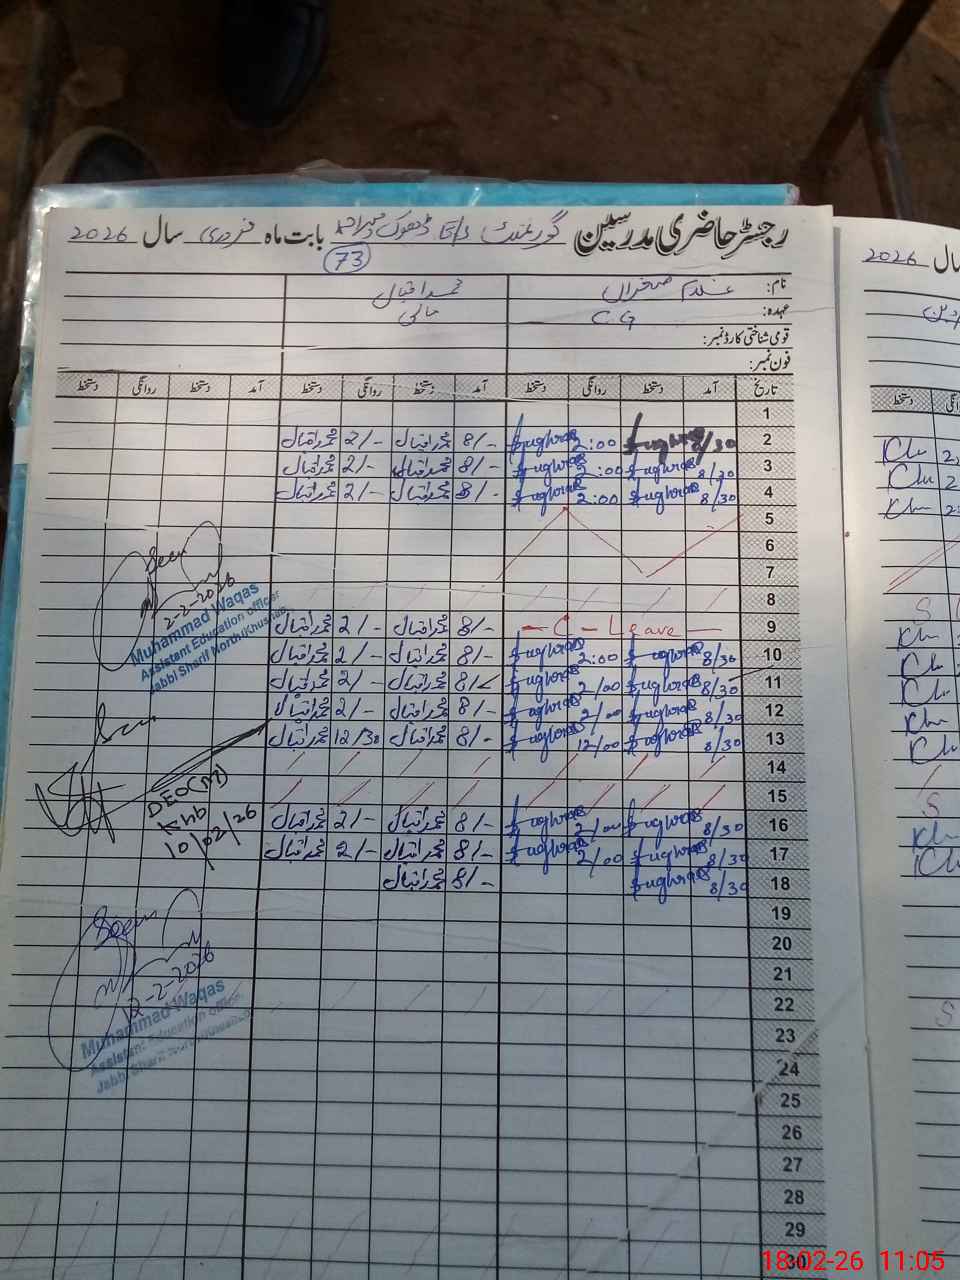 رجسٹر حاضری مدرسین گورنمنٹ ڈھوک بابت ماہ فروری سال 2026
73
نام: غلام صغراں محمد اقبال
عہدہ: C.G مالی
قومی شناختی کارڈ نمبر:
فون نمبر:
تاریخ آمد دستخط روانگی دستخط آمد دستخط روانگی دستخط آمد دستخط روانگی دستخط
1
2 8/30 Sughran 2:00 Sughran 8/- محمد اقبال 2/- محمد اقبال
3 8/30 Sughran 2:00 Sughran 8/- محمد اقبال 2/- محمد اقبال
4 8/30 Sughran 2:00 Sughran 8/- محمد اقبال 2/- محمد اقبال
5
6
7
8
9 C - Leave 8/- محمد اقبال 2/- محمد اقبال
10 8/30 Sughran 2:00 Sughran 8/- محمد اقبال 2/- محمد اقبال
11 8/30 Sughran 2/00 Sughran 8/- محمد اقبال 2/- محمد اقبال
12 8/30 Sughran 2/00 Sughran 8/- محمد اقبال 2/- محمد اقبال
13 8/30 Sughran 12/00 Sughran 8/- محمد اقبال 12/30 محمد اقبال
14
15
16 8/30 Sughran 2/00 Sughran 8/- محمد اقبال 2/- محمد اقبال
17 8/30 Sughran 2/00 Sughran 8/- محمد اقبال 2/- محمد اقبال
18 8/30 Sughran 8/- محمد اقبال
19
20
21
22
23
24
25
26
27
28
29
30
Seen
2-2-2026
Muhammad Waqas
Assistant Education Officer
Jabbi Sharif North(Khushab)
Seen
DEO(M)
Khb
10/02/26
Seen
12-2-2026
Muhammad Waqas
Assistant Education Officer
Jabbi Sharif North(Khushab)
سال 2026
دستخط
18-02-26 11:05